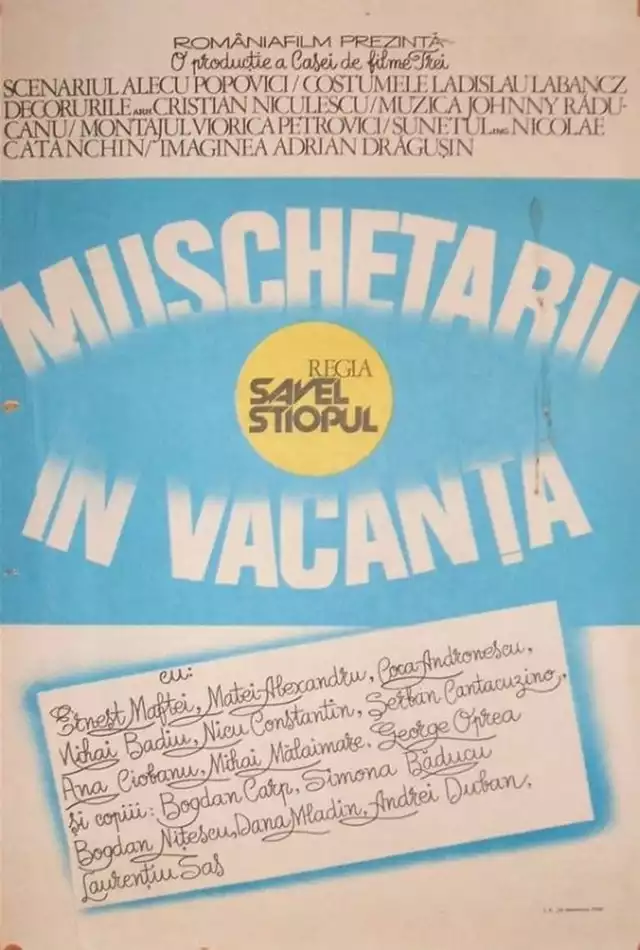 ROMÂNIAFILM PREZINTĂ
O producție a Casei de filme Trei
SCENARIUL ALECU POPOVICI/COSTUMELE LADISLAU LABANCZ
DECORURILE ARH. CRISTIAN NICULESCU/MUZICA JOHNNY RĂDU-
CANU/MONTAJUL VIORICA PETROVICI/SUNETUL ING. NICOLAE
CATANCHIN/IMAGINEA ADRIAN DRĂGUȘIN
MUSCHETARII
REGIA
SAVEL
STIOPUL
IN VACANȚA
cu:
Ernest Maftei, Matei Alexandru, Coca Andronescu,
Mihai Badiu, Nicu Constantin, Șerban Cantacuzino,
Ana Ciobanu, Mihai Mălaimare, George Oprea
și copiii: Bogdan Carp, Simona Băducu
Bogdan Nițescu, Dana Mladin, Andrei Duban,
Laurențiu Sas